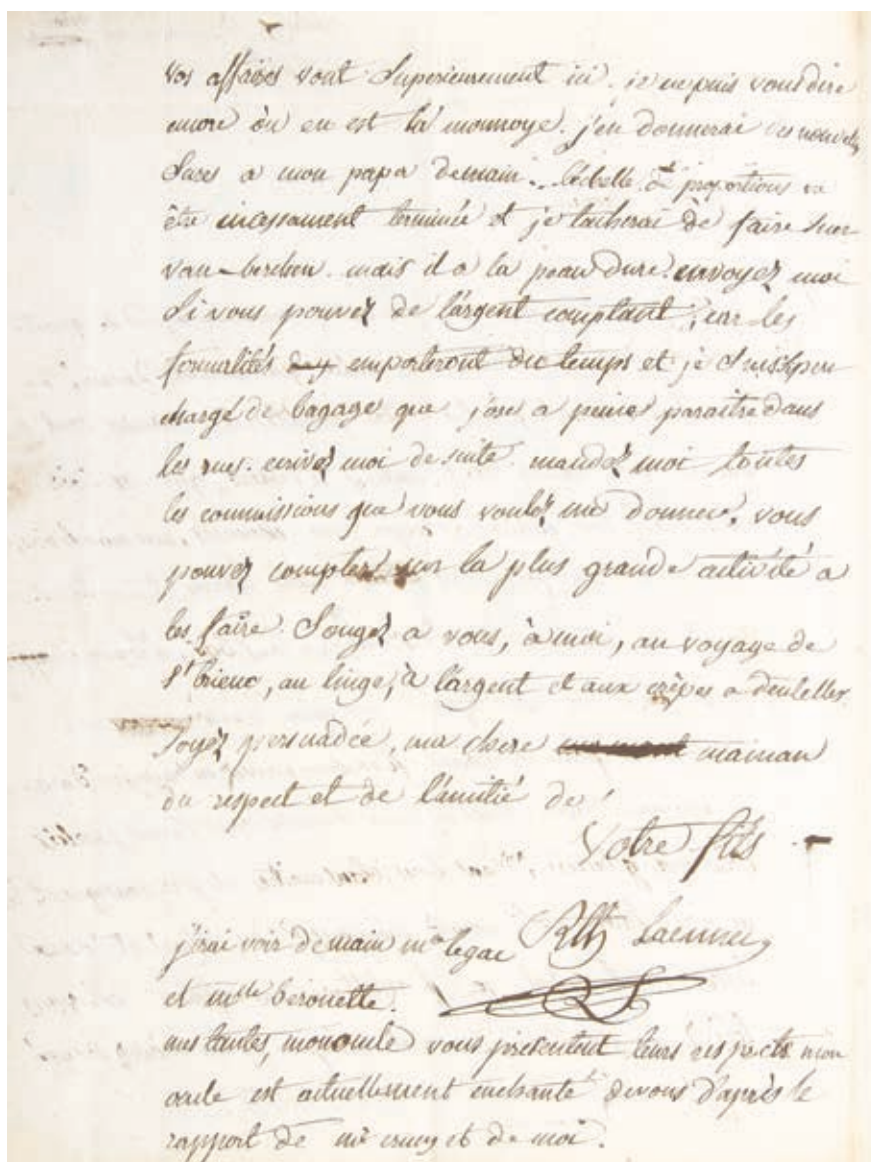 vos affaires vont superieurement ici. je ne puis vous dire
encore où en est la monnoye. j'en donnerai des nouvelles
sures a mon papa demain. l'echelle de proportions va
être incessament terminée et je tacherai de faire suer
van-berchen. mais il a la peau dure. envoyez moi
si vous pouvez de l'argent comptant, car les
formalités emporteront du temps et je suis si peu
chargé de bagage que j'ose a peine paraitre dans
les rues. ecrivez moi de suite. mandez moi toutes
les commissions que vous voulez me donner. vous
pouvez compter sur la plus grande activité a
les faire. Songez a vous, à moi, au voyage de
st brieuc, au linge, à l'argent et aux crêpes a dentelles.
Soyez persuadée, ma chere maman
du respect et de l'amitié de
Votre fils
j'irai voir demain me legac Rth Laennec
et melle berouette.
mes tantes, mon oncle vous presentent leurs respects. mon
oncle est actuellement enchanté de vous d'après le
rapport de mr crucy et de moi.